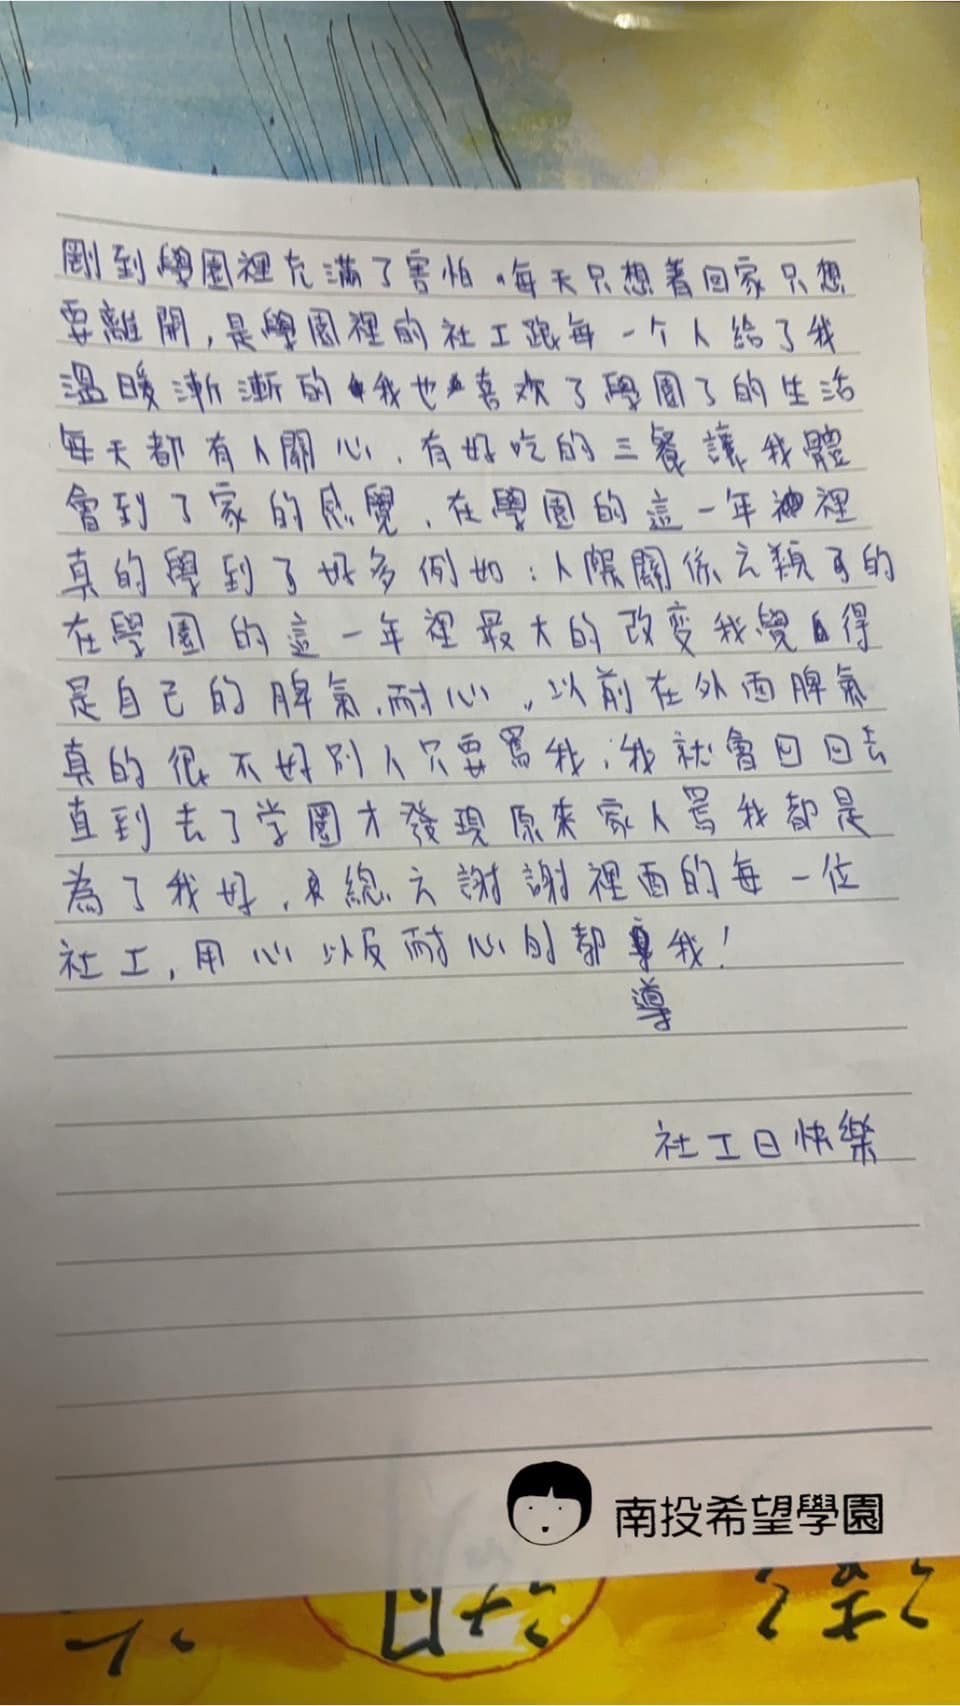 剛到學園裡充滿了害怕。每天只想著回家只想
要離開,是學園裡的社工跟每一个人給了我
溫暖漸漸的我也喜欢了學園了的生活
每天都有人關心,有好吃的三餐讓我體
會到了家的感覺,在學園的這一年裡
真的學到了好多例如:人際關係之類的
在學園的這一年裡最大的改變我覺得
是自己的脾氣,耐心,以前在外面脾氣
真的很不好別人只要罵我,我就會回回去
直到去了学園才發現原來家人罵我都是
為了我好,總之謝謝裡面的每一位
社工,用心以及耐心的都我!
導
社工日快樂
南投希望學園